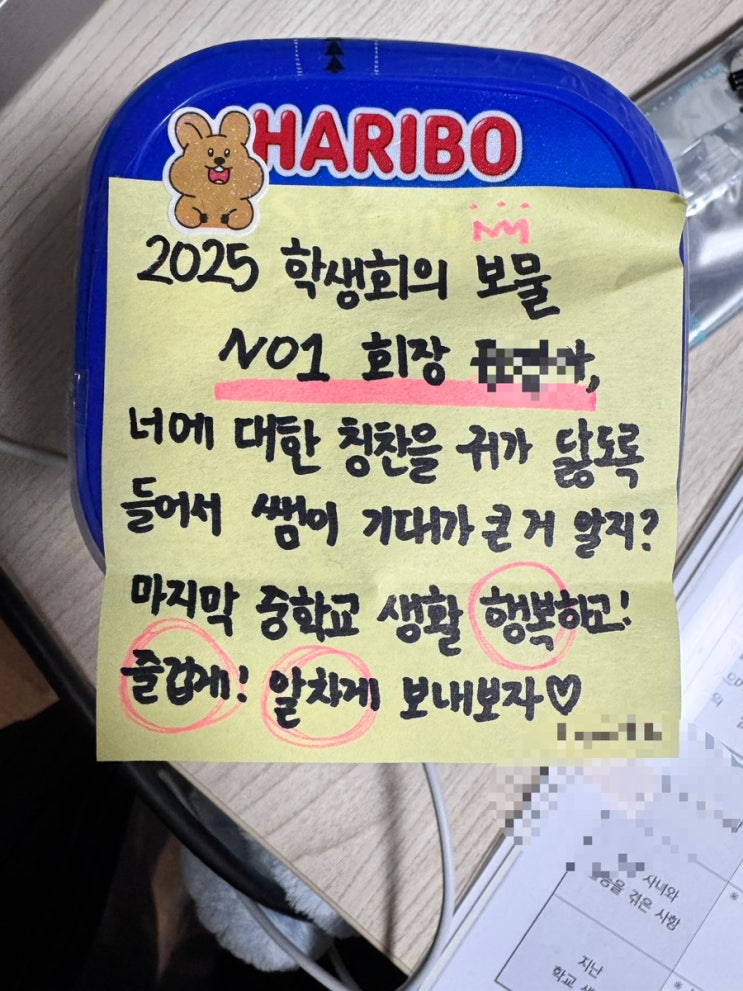 HARIBO
2025 학생회의 보물
NO1 회장
너에 대한 칭찬을 귀가 닳도록
들어서 쌤이 기대가 큰 거 알지?
마지막 중학교 생활 행복하고!
즐겁게! 알차게 보내보자♡
자녀와
겪은 사항
지난
학교